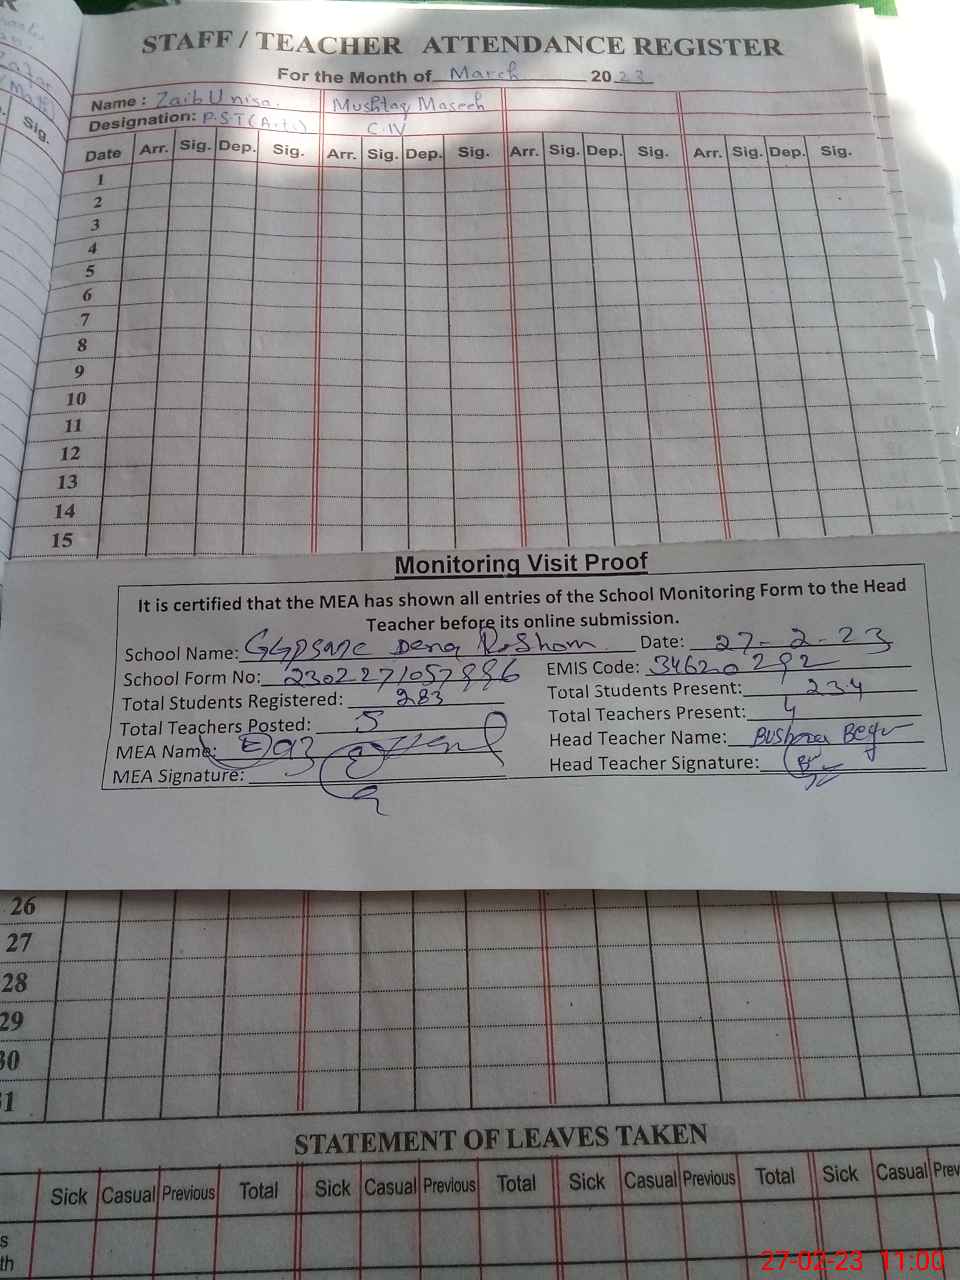 STAFF / TEACHER ATTENDANCE REGISTER
For the Month of March 2023
Name : Zaib Unisa. Mushtaq Maseeh
Designation: P.S.T (Arts) C.IV
Sig.
Date Arr. Sig. Dep. Sig. Arr. Sig. Dep. Sig. Arr. Sig. Dep. Sig. Arr. Sig. Dep. Sig.
1
2
3
4
5
6
7
8
9
10
11
12
13
14
15
Monitoring Visit Proof
It is certified that the MEA has shown all entries of the School Monitoring Form to the Head
Teacher before its online submission.
School Name: Dena Date: 27-2-23
School Form No: EMIS Code: 34620292
Total Students Registered: 283 Total Students Present: 234
Total Teachers Posted: 5 Total Teachers Present: 4
MEA Name: Head Teacher Name: Bushra
MEA Signature: Head Teacher Signature:
26
27
28
29
30
31
STATEMENT OF LEAVES TAKEN
Sick Casual Previous Total Sick Casual Previous Total Sick Casual Previous Total Sick Casual Prev
s
th
27-02-23 11:00